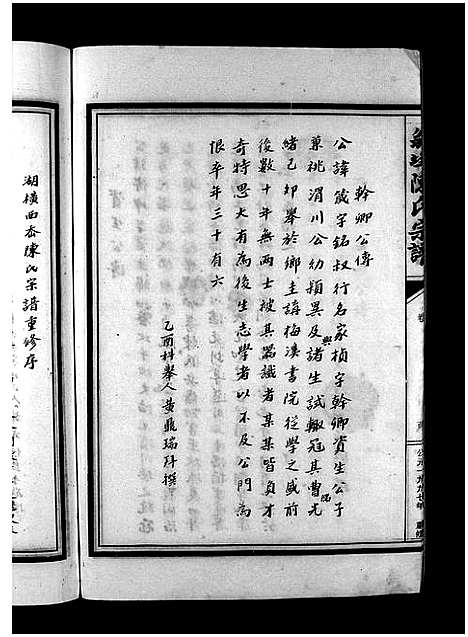 幹卿公傳
公諱箴字銘叔行名家楨字幹卿資生公子
兼祧渭川公幼穎異及與諸生試輙冠其曹光
緒己卯舉於鄉主講梅溪書院從學之盛前
後數十年無兩士被其器識者某某皆負才
奇特思大有為後生志學者以不及公門為
恨卒年三十有六
乙酉科舉人黃鼎瑞拜撰
湖橫西岙陳氏宗譜重修序